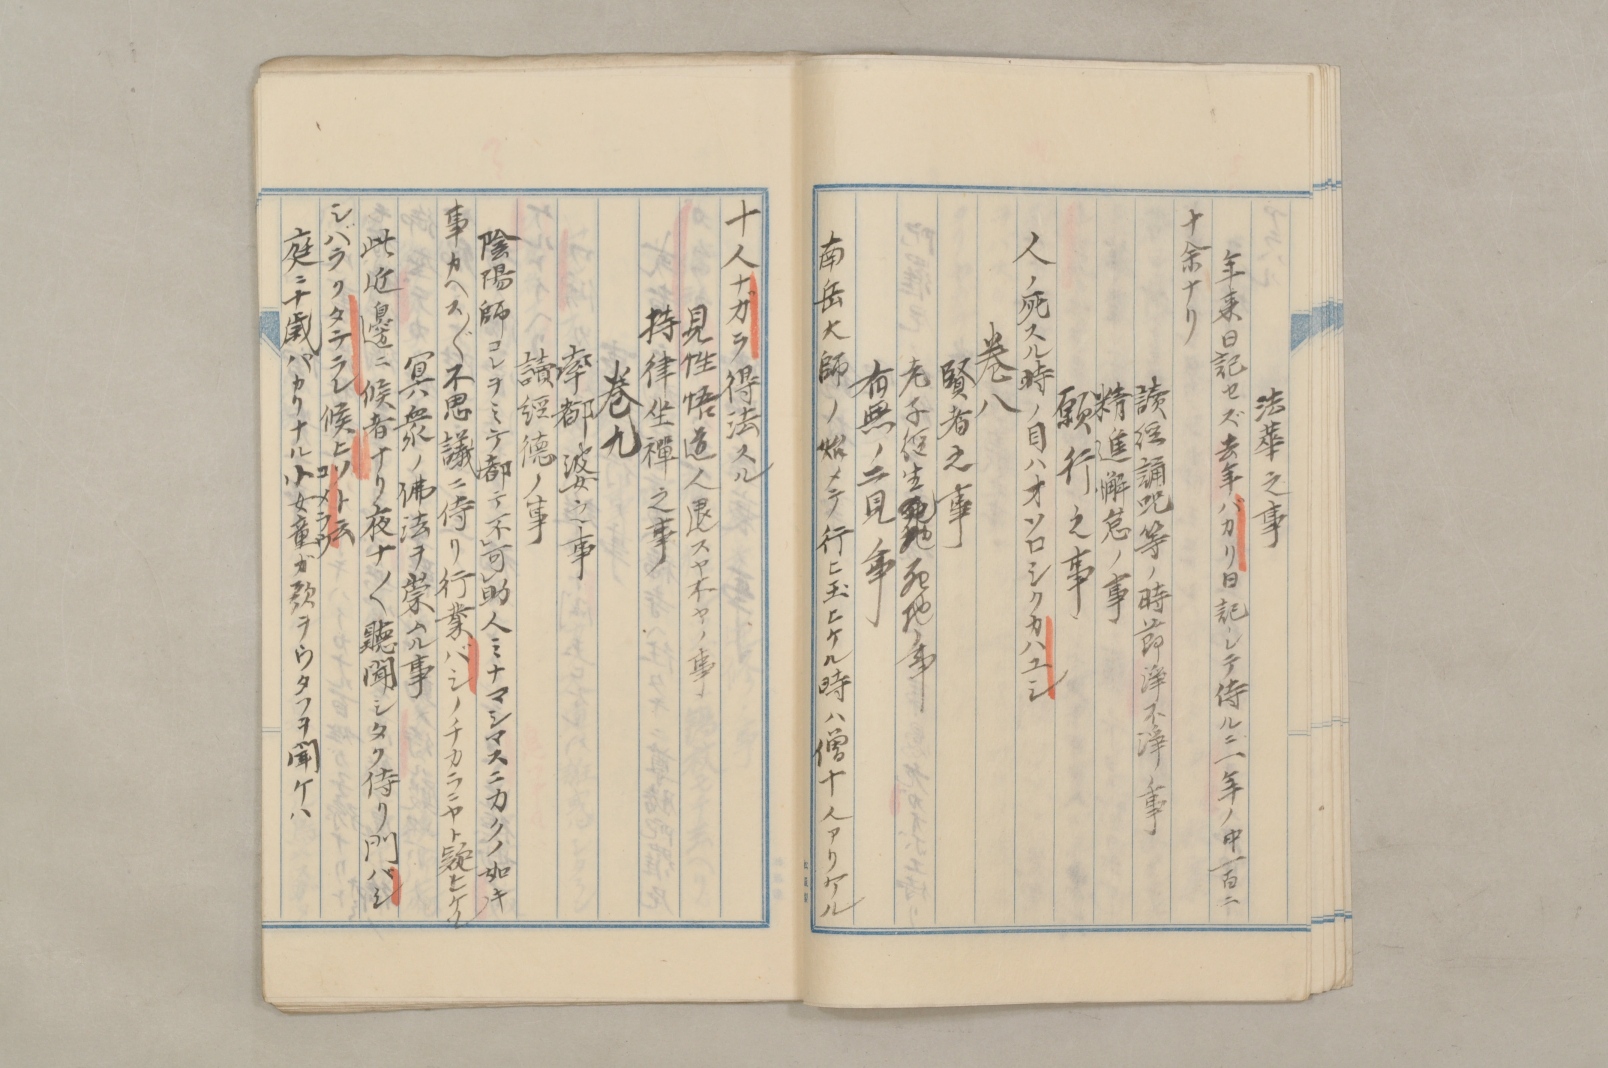 法華之事
年来日記セズ去年バカリ日記シテ侍ルニ一年ノ中一百二
十余ナリ
讀経誦呪等ノ時節浄不浄ノ事
精進懈怠ノ事
願行之事
人ノ死スル時ノ目ハオソロシクカハユシ
巻八
賢者之事
老子経生死地ノ事
有無ノ二見ノ事
南岳大師ノ始メテ行ヒ玉ヒケル時ハ僧十人アリケル
十人ナガラ得法スル
見性悟道人退スヤ不ヤノ事
持律坐禅之事
巻九
率都婆之事
讀經德ノ事
陰陽師コレヲミテ都テ不可助人ミナマシマスニカクノ如キ
事カヘス〲不思議ニ侍リ行業バシノチカラニヤト疑ヒケル
冥衆ノ佛法ヲ崇ムル事
此近邊ニ候者ナリ夜ナ〱聽聞シタク侍リ門バシ
シバラクタテラレ候ヒソト云
庭ニ十歳バカリナル小女童ガ歌ヲウタフヲ聞ケハ
コメラワ